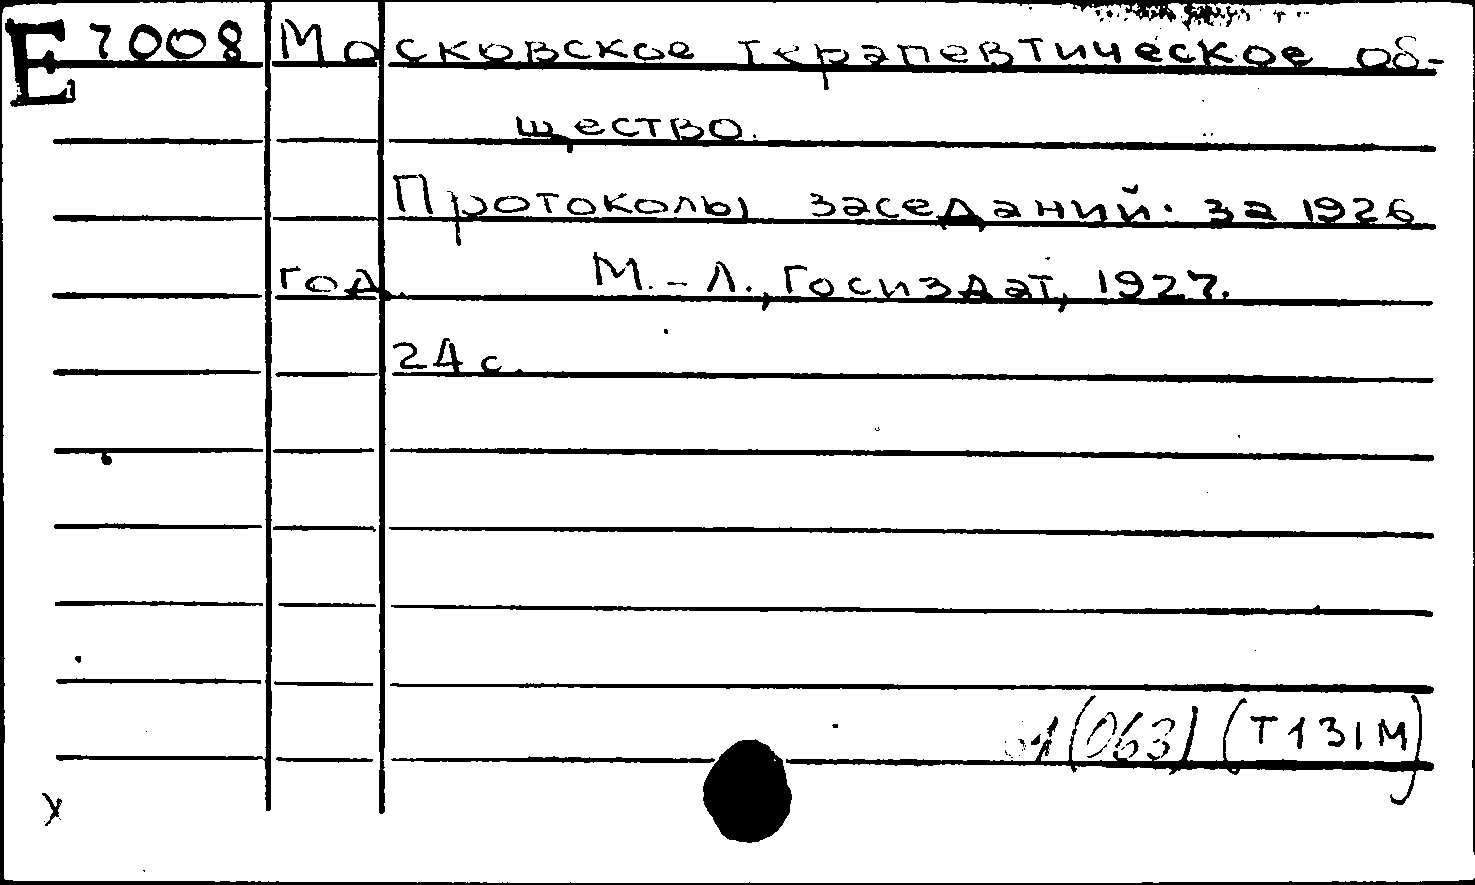 Е 7008 Московское терапевтическое об-
щество.
Протоколы заседаний. за 1926
год. М.-Л., Госиздат, 1927.
24 с.
61(063) (Т131М)